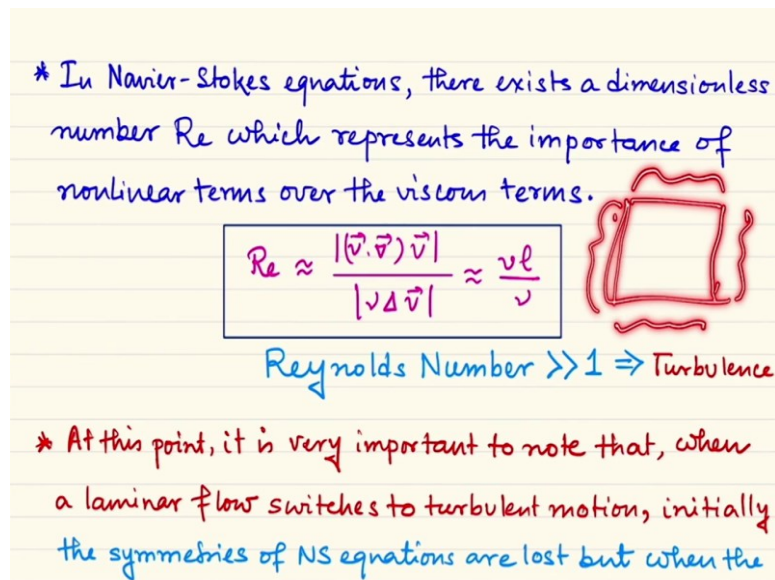 * In Navier-Stokes equations, there exists a dimensionless
number Re which represents the importance of
nonlinear terms over the viscous terms.
Re ≈ |(v⃗.∇⃗)v⃗| / |νΔv⃗| ≈ vl / ν
Reynolds Number >>1 ⇒ Turbulence
* At this point, it is very important to note that, when
a laminar flow switches to turbulent motion, initially
the symmetries of NS equations are lost but when the